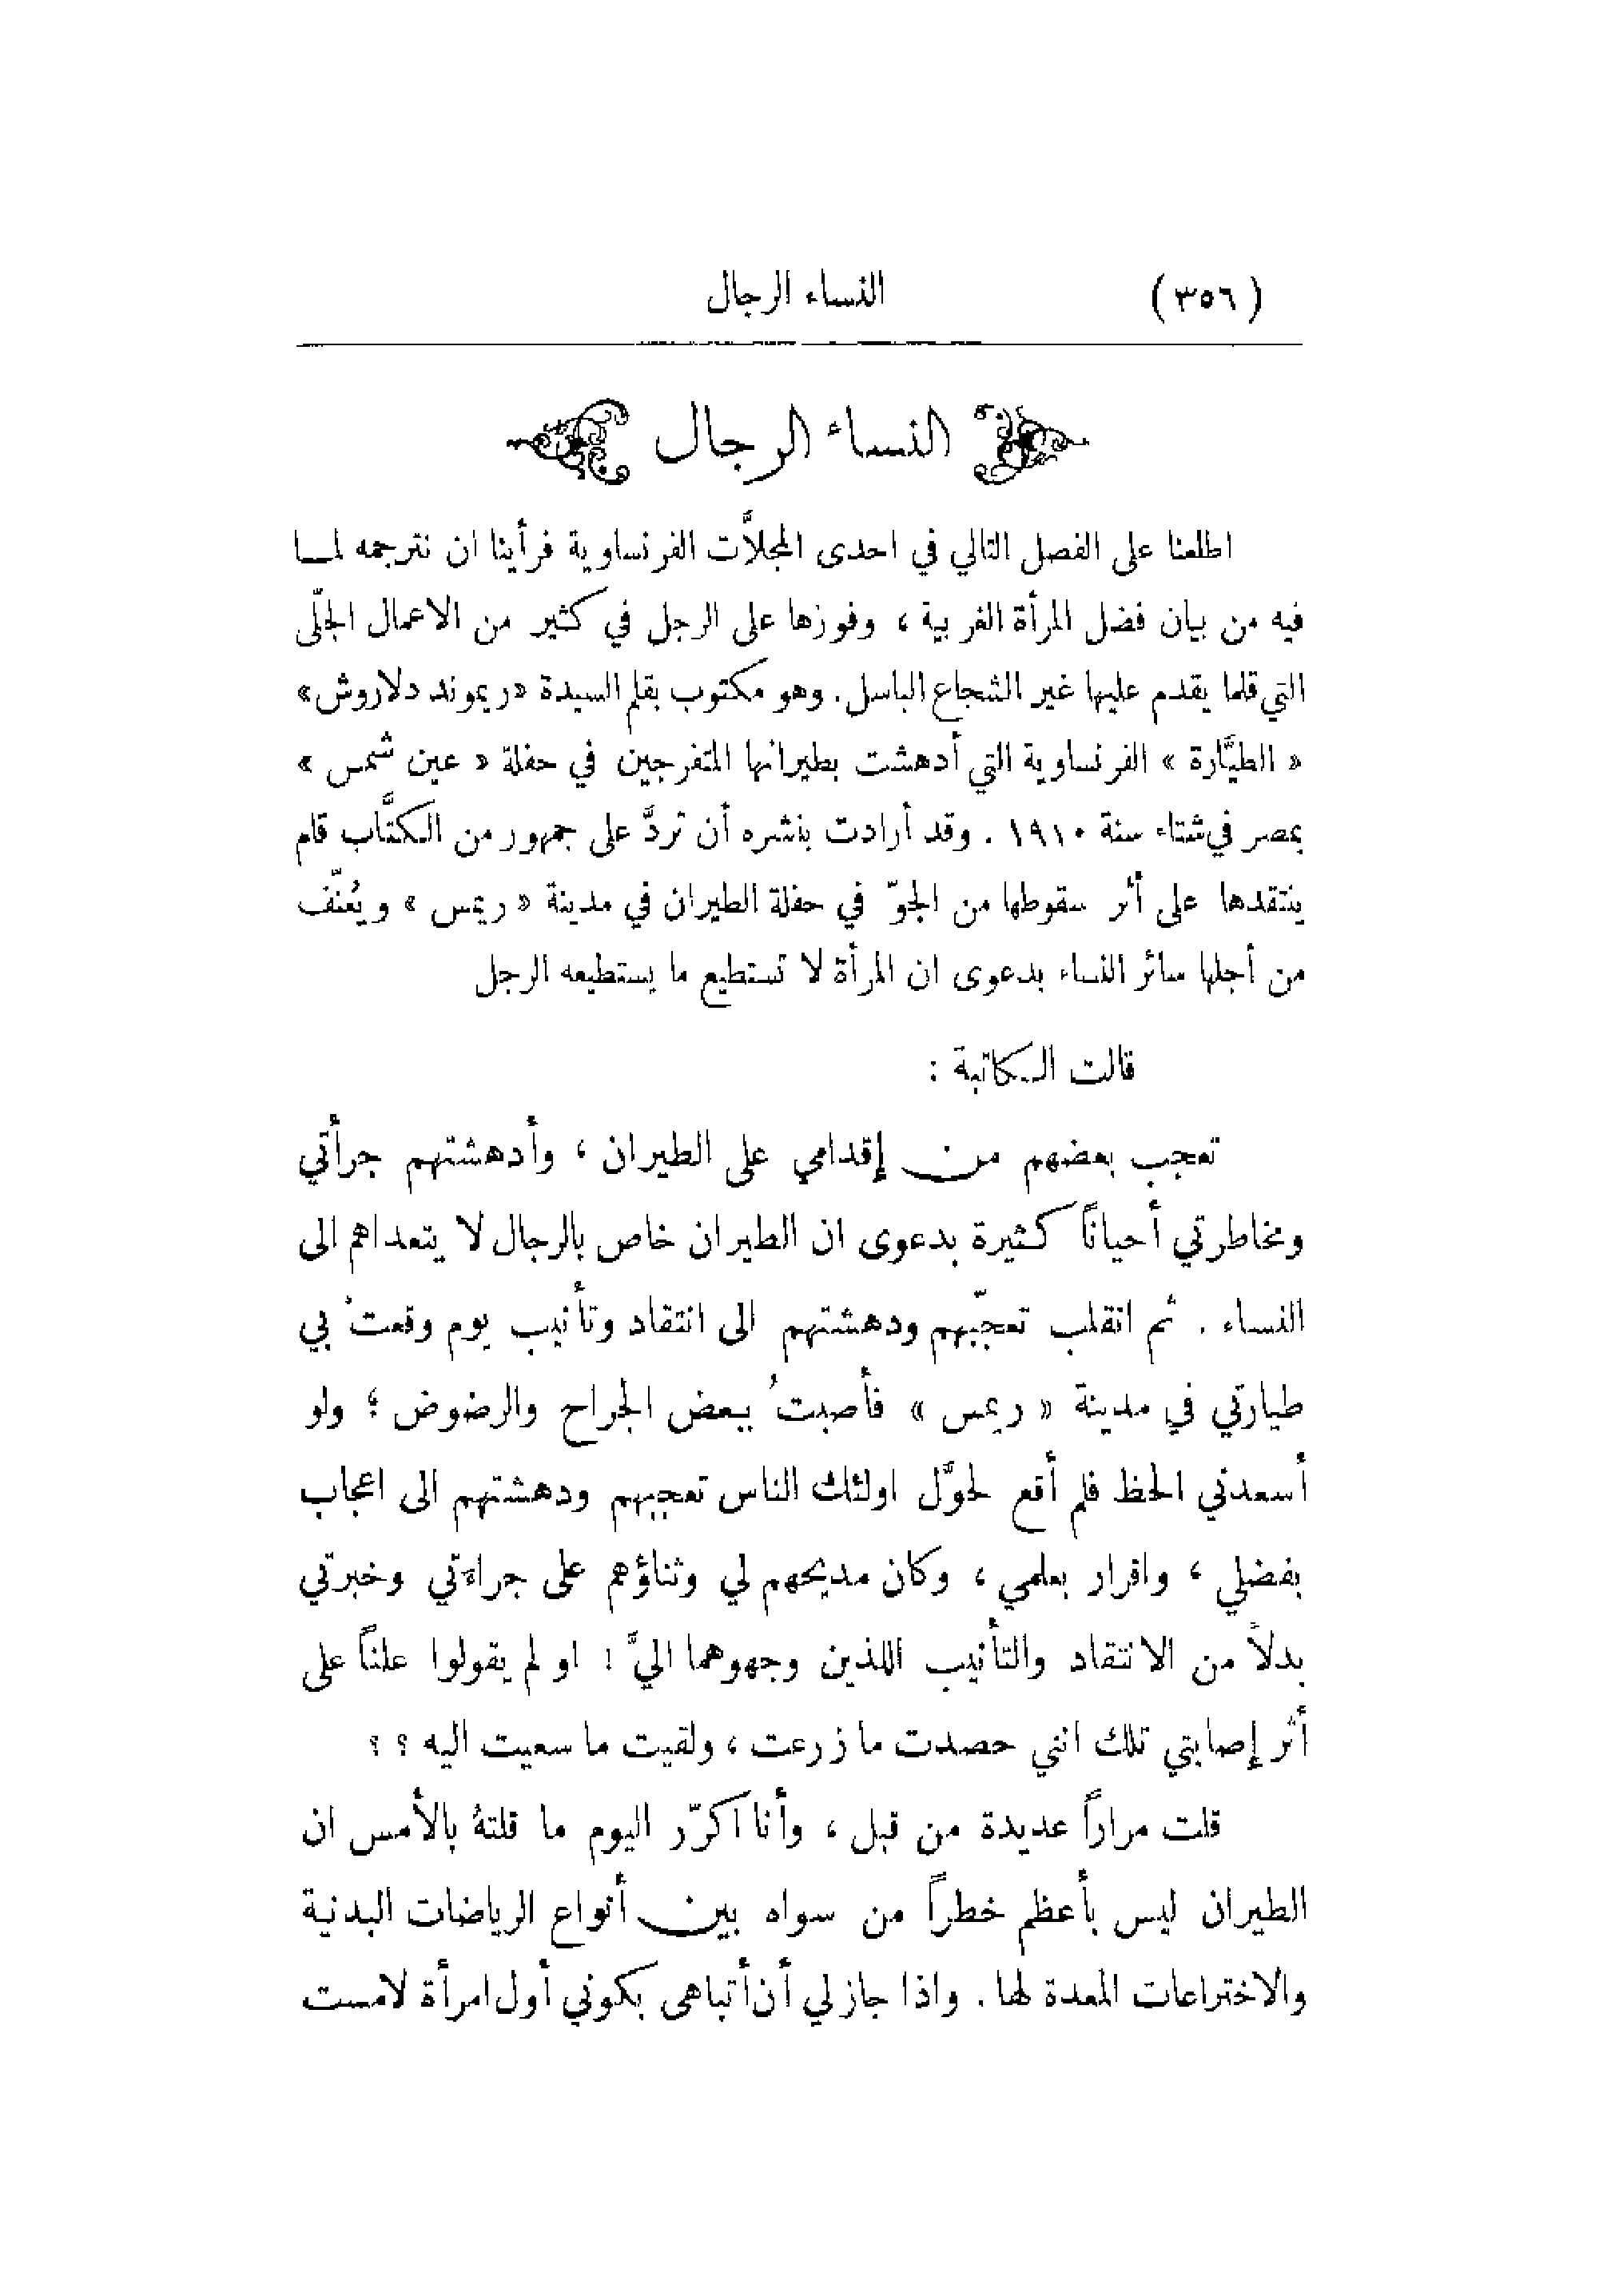 (٣٥٦) النساء الرجال
النساء الرجال
اطلعنا على الفصل التالي في احدى المجلاَّت الفرنساوية فرأينا ان نترجمه لمـا
فيه من بيان فضل المرأة الغربية ، وفوزها على الرجل في كثير من الاعمال الجلّى
التي قلما يقدم عليها غير الشجاع الباسل. وهو مكتوب بقلم السيدة «ريموند دلاروش»
« الطيَّارة » الفرنساوية التي أدهشت بطيرانها المتفرجين في حفلة « عين شمس »
بمصر في شتاء سنة ١٩١٠ . وقد أرادت بنشره أن تردَّ على جمهور من الكتَّاب قام
ينتقدها على أثر سقوطها من الجوّ في حفلة الطيران في مدينة « ريمس » ويُعنّف
من أجلها سائر النساء بدعوى ان المرأة لا تستطيع ما يستطيعه الرجل
قالت الكاتبة :
تعجب بعضهم من إقدامي على الطيران ، وأدهشتهم جرأتي
ومخاطرتي أحياناً كثيرة بدعوى ان الطيران خاص بالرجال لا يتعداهم الى
النساء . ثم انقلب تعجّبهم ودهشتهم الى انتقاد وتأنيب يوم وقعتْ بي
طيارتي في مدينة « ريمس » فأصبتُ ببعض الجراح والرضوض ؛ ولو
أسعدني الحظ فلم أقع لحوَّل اولئك الناس تعجبهم ودهشتهم الى اعجاب
بفضلي ، واقرار بعلمي ، وكان مديحهم لي وثناؤهم على جراءتي وخبرتي
بدلاً من الانتقاد والتأنيب اللذين وجهوهما اليَّ ! او لم يقولوا علناً على
أثر إصابتي تلك انني حصدت ما زرعت ، ولقيت ما سعيت اليه ؟ ؟
قلت مراراً عديدة من قبل ، وأنا اكرّر اليوم ما قلتهُ بالأمس ان
الطيران ليس بأعظم خطراً من سواه بين أنواع الرياضات البدنية
والاختراعات المعدة لها . واذا جاز لي أن أتباهى بكوني أول امرأة لامست